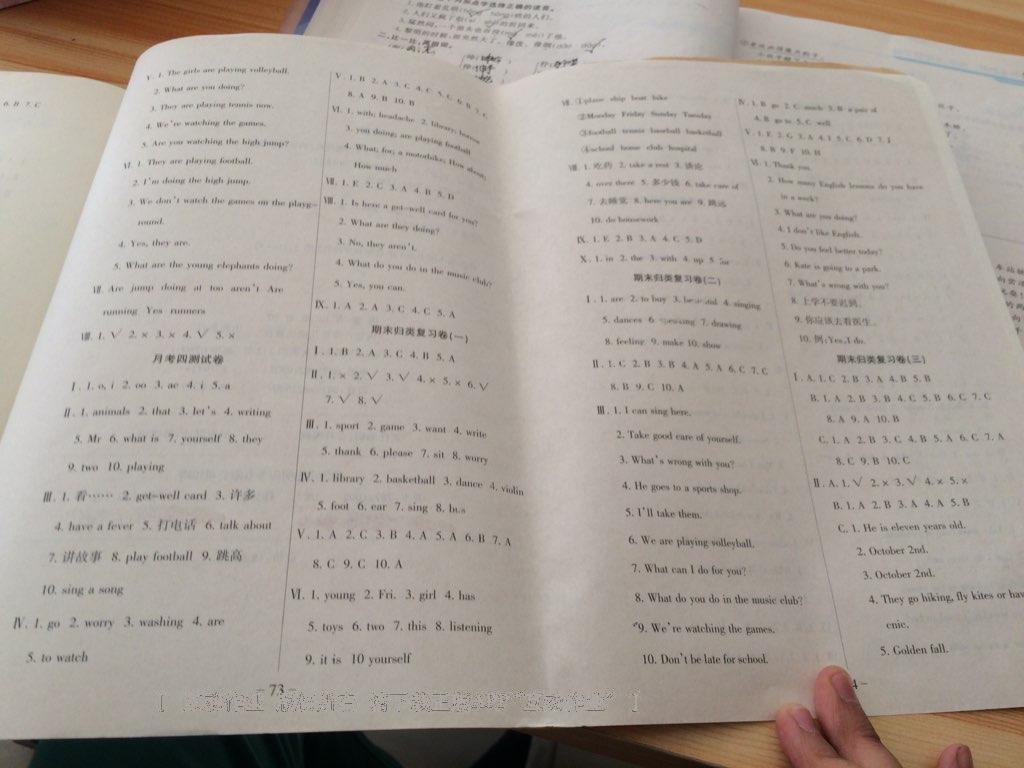 6. B 7. C
V. 1. The girls are playing volleyball.
2. What are you doing?
3. They are playing tennis now.
4. We're watching the games.
5. Are you watching the high jump?
VI. 1. They are playing football.
2. I'm doing the high jump.
3. We don't watch the games on the playg-
round.
4. Yes, they are.
5. What are the young elephants doing?
VII. Are jump doing at too aren't Are
running Yes runners
VIII. 1. √ 2. × 3. × 4. √ 5. ×
月考四测试卷
I. 1. o, i 2. oo 3. ae 4. i 5. a
II. 1. animals 2. that 3. let's 4. writing
5. Mr 6. what is 7. yourself 8. they
9. two 10. playing
III. 1. 看…… 2. get-well card 3. 许多
4. have a fever 5. 打电话 6. talk about
7. 讲故事 8. play football 9. 跳高
10. sing a song
IV. 1. go 2. worry 3. washing 4. are
5. to watch
V. 1. B 2. A 3. C 4. C 5. C 6. B 7. C
8. A 9. B 10. B
VI. 1. with; headache 2. library; borrow
3. you doing; are playing football
4. What; for; a motorbike; How about;
How much
VII. 1. E 2. C 3. A 4. B 5. D
VIII. 1. Is here a get-well card for you?
2. What are they doing?
3. No, they aren't.
4. What do you do in the music club?
5. Yes, you can.
IX. 1. A 2. A 3. C 4. C 5. A
期末归类复习卷(一)
I. 1. B 2. A 3. C 4. B 5. A
II. 1. × 2. √ 3. √ 4. × 5. × 6. √
7. √ 8. √
III. 1. sport 2. game 3. want 4. write
5. thank 6. please 7. sit 8. worry
IV. 1. library 2. basketball 3. dance 4. violin
5. foot 6. ear 7. sing 8. bus
V. 1. A 2. C 3. B 4. A 5. A 6. B 7. A
8. C 9. C 10. A
VI. 1. young 2. Fri. 3. girl 4. has
5. toys 6. two 7. this 8. listening
9. it is 10 yourself
73
VII. ①plane ship boat bike
②Monday Friday Sunday Tuesday
③football tennis baseball basketball
④school home club hospital
VIII. 1. 吃药 2. take a rest 3. 谈论
4. over there 5. 多少钱 6. take care of
7. 去睡觉 8. here you are 9. 跳远
10. do housework
IX. 1. E 2. B 3. A 4. C 5. D
X. 1. in 2. the 3. with 4. up 5. for
期末归类复习卷(二)
I. 1. are 2. to buy 3. beautiful 4. singing
5. dances 6. speaking 7. drawing
8. feeling 9. make 10. show
II. 1. C 2. B 3. B 4. A 5. A 6. C 7. C
8. B 9. C 10. A
III. 1. I can sing here.
2. Take good care of yourself.
3. What's wrong with you?
4. He goes to a sports shop.
5. I'll take them.
6. We are playing volleyball.
7. What can I do for you?
8. What do you do in the music club?
9. We're watching the games.
10. Don't be late for school.
IV. 1. B go 2. C much 3. B a pair of
4. B go to 5. C well
V. 1. E 2. G 3. A 4. I 5. C 6. D 7. J
8. B 9. F 10. H
VI. 1. Thank you.
2. How many English lessons do you have
in a week?
3. What are you doing?
4. I don't like English.
5. Do you feel better today?
6. Kate is going to a park.
7. What's wrong with you?
8. 上学不要迟到.
9. 你应该去看医生.
10. 例:Yes, I do.
期末归类复习卷(三)
I. A. 1. C 2. B 3. A 4. B 5. B
B. 1. A 2. B 3. B 4. C 5. B 6. C 7. C
8. A 9. A 10. B
C. 1. A 2. B 3. C 4. B 5. A 6. C 7. A
8. C 9. B 10. C
II. A. 1. √ 2. × 3. √ 4. × 5. ×
B. 1. A 2. B 3. A 4. A 5. B
C. 1. He is eleven years old.
2. October 2nd.
3. October 2nd.
4. They go hiking, fly kites or hav
cnic.
5. Golden fall.
4